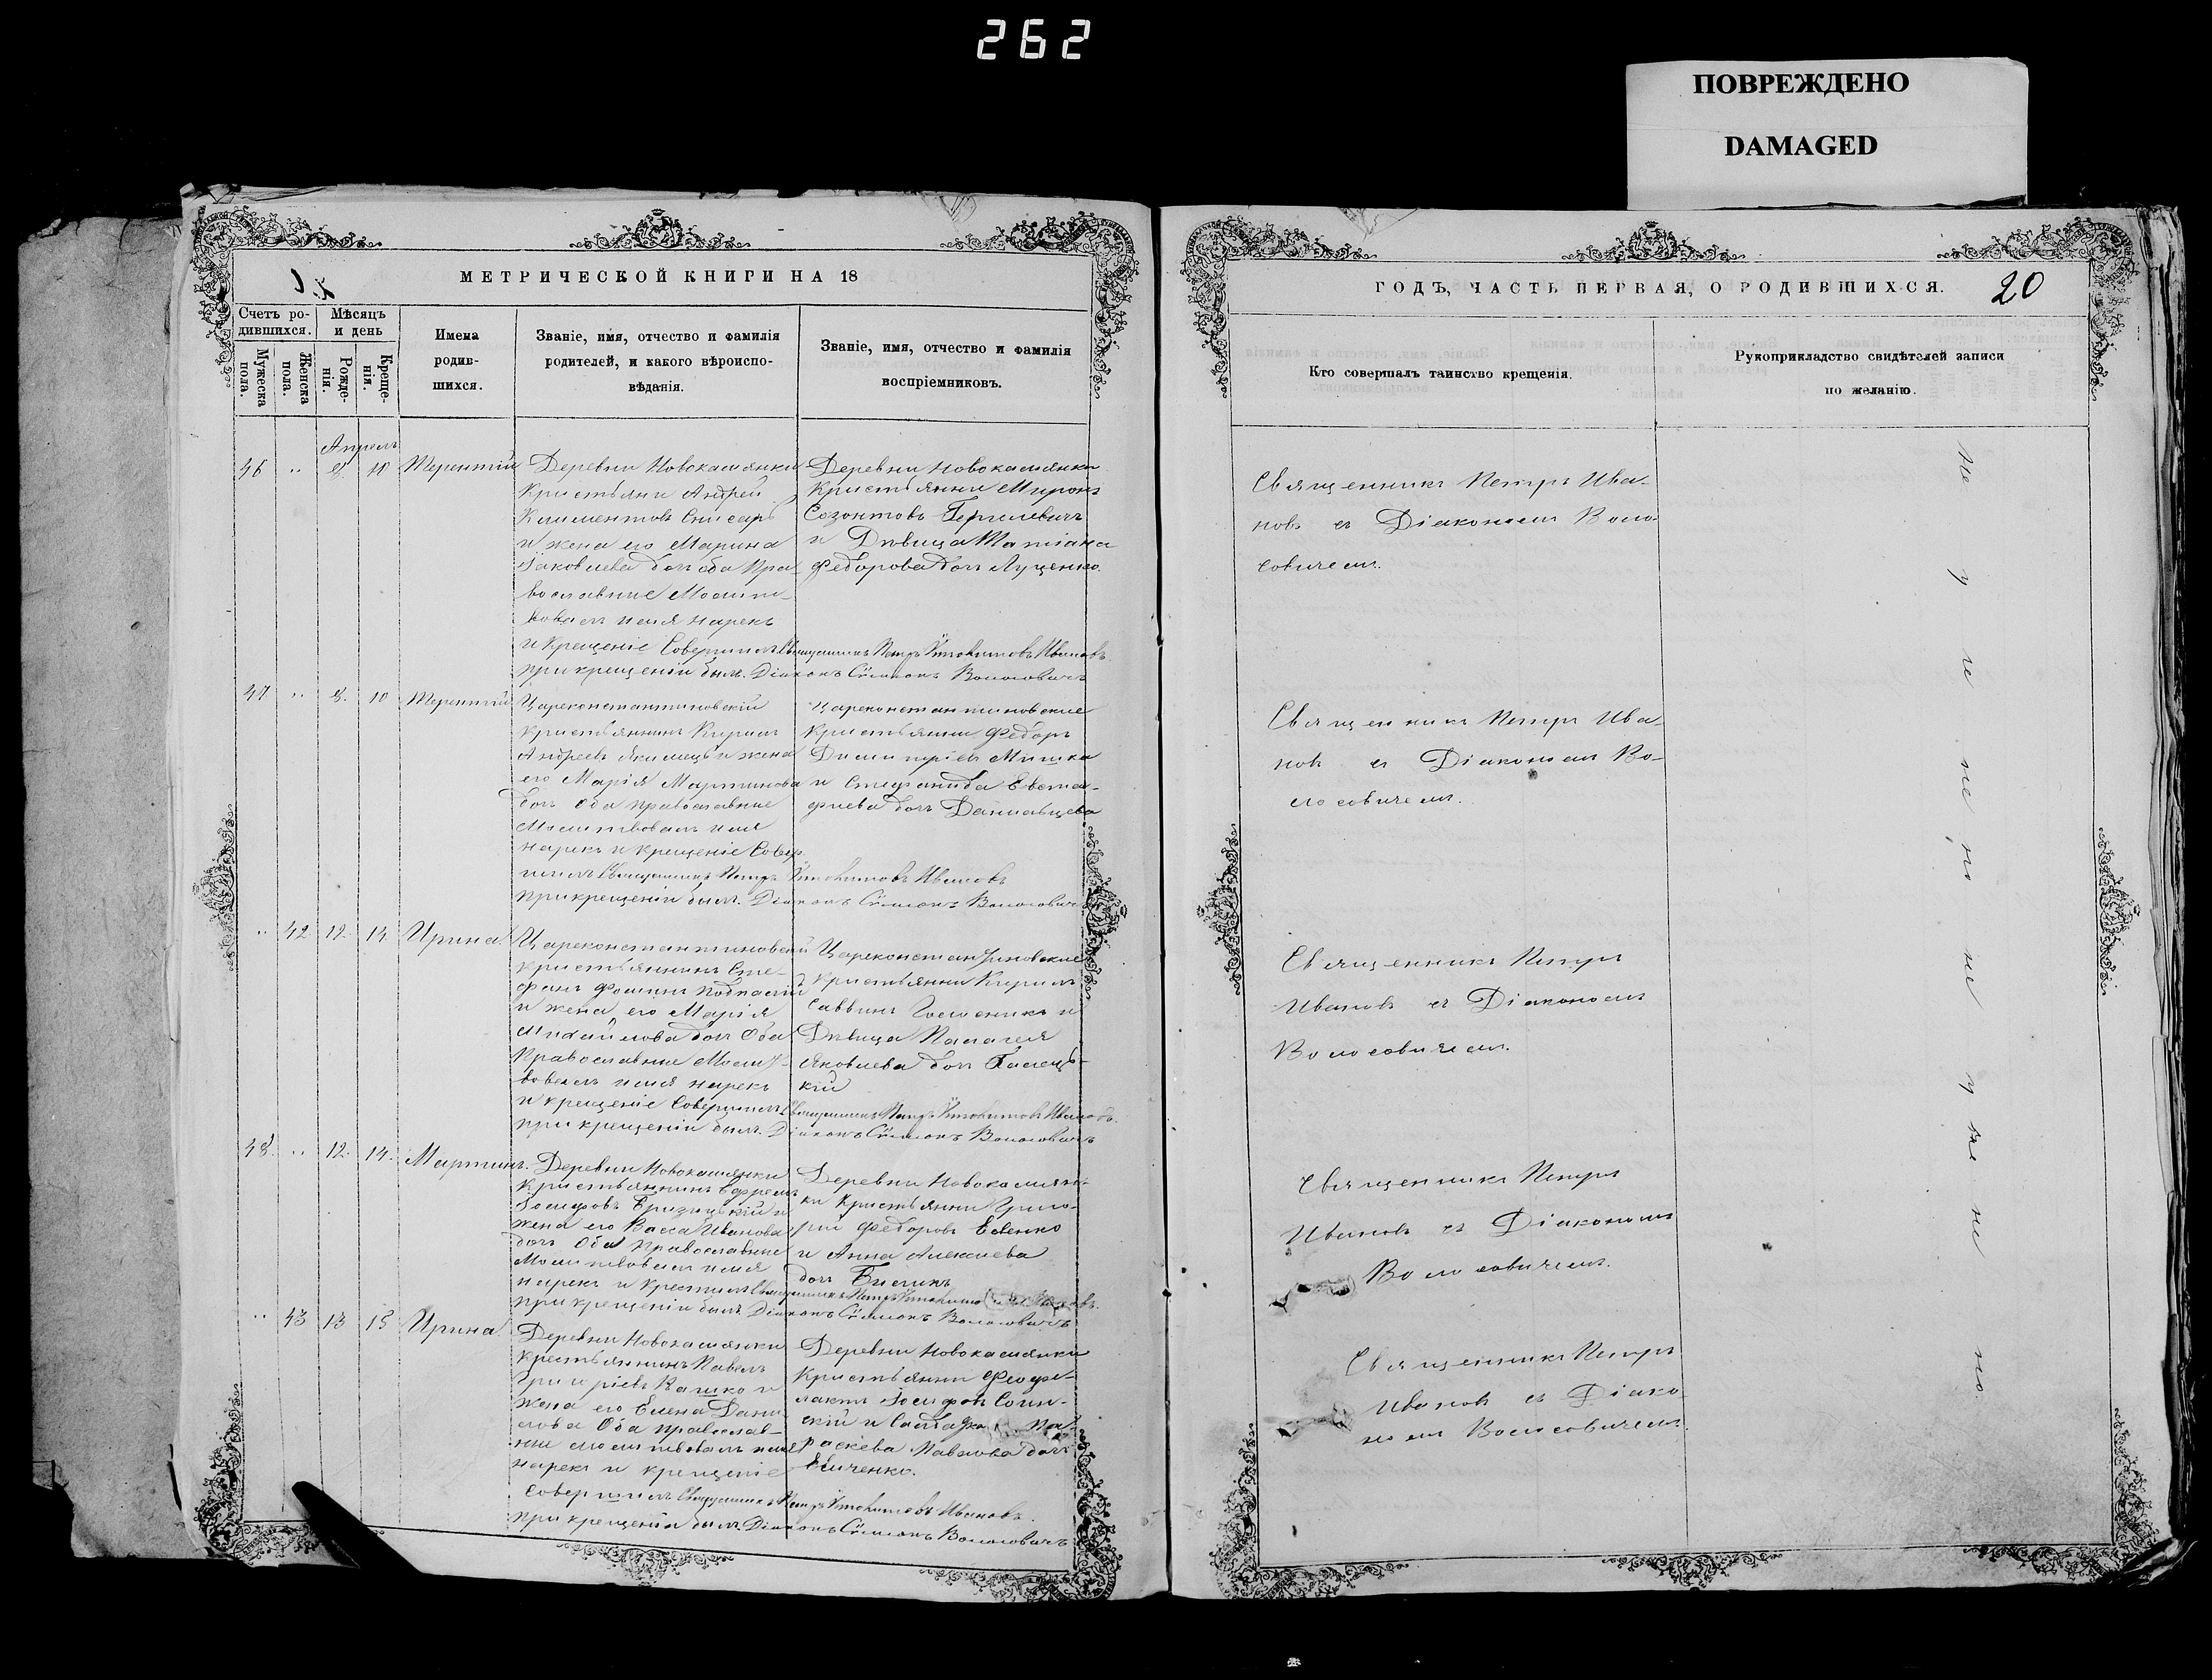 262
ПОВРЕЖДЕНО
DAMAGED
МЕТРИЧЕСКОЙ КНИГИ НА 18
Счетъ ро-
дившихся.
Мужеска
пола.
Женска
пола.
Мѣсяцъ
и день
Рожде-
нія.
Креще-
нія.
Имена
родив-
шихся.
Званіе, имя, отчество и фамилія
родителей, и какого вѣроиспо-
вѣданія.
Званіе, имя, отчество и фамилія
воспріемниковъ.
Апрель
46 " 8. 10 Терентій
Деревни Новокамянки
Крестьяни Андрей
Климентовъ Снисарь
и жена его Марина
Іаковлева доч оба Пра-
вославные Молит-
вовалъ имя нарекъ
и Крещеніе Совершилъ Священникъ Петръ Иванов
при крещеніи былъ Діаконъ Симеонъ Волосовичъ
Деревни Новокамянки
Крестьянни Миронъ
Созонтовъ
и Дѣвица Татіана
Федорова доч Луценко.
47 " 8. 10 Терентій
Цареконстантиновскій
крестьянинъ Кирилъ
Андреевъ Якимецъ и жена
его Марія Мартинова
доч Оба православные
Молитвовалъ имя
нарекъ и крещеніе Совер
шилъ Священникъ Петръ Ивановъ
при крещеніи былъ Діаконъ Симеонъ Волосовичъ
Цареконстантиновские
Крестьянни Федоръ
Димитріевъ Мишка
и Стефанида Евста-
фиева доч
" 42 12. 14. Ирина.
Цареконстантиновскій
крестьянинъ Сте-
фанъ Фоминъ
и жена его Марія
Михайлова доч Оба
Православные Молит-
вовалъ имя нарекъ
и крещеніе Совершилъ Священникъ Петръ Ивановъ.
при крещеніи былъ. Діаконъ Симеонъ Волосовичъ
Цареконстантиновские
крестьянни Кирилъ
Саввинъ и
Дѣвица Палагея
Яковлева доч
кій
48. " 12. 14. Мартинъ.
Деревни Новокамянки
Крестьянинъ Ефремъ
Іосифовъ и
жена его Васса Иванова
доч Оба Православные
Молитвовалъ имя
нарекъ и Крестилъ Священникъ Петръ
при крещеніи былъ Діаконъ Симеонъ Волосовичъ
Деревни Новокамян-
ки Крестьянни Григо-
рий Федоровъ Евенко
и Анна Алексиева
доч
" 43 13 15 Ирина.
Деревни Новокамянки
Крестьянинъ Павелъ
Григоріевъ Кашко и
жена его Елена Дани
лова Оба православ-
ные молитвовалъ имя
нарекъ и крещеніе
Совершилъ Священникъ Петръ Ивановъ.
при крещеніи былъ. Діаконъ Симеонъ Волосовичъ
Деревни Новокамянки
Крестьянни Феофи-
лактъ Іосифовъ
скій и Пa-
раскева Павлова доч
ГОДЪ, ЧАСТЬ ПЕРВАЯ, О РОДИВШИХСЯ.
20
Кто совершалъ таинство крещенія.
Рукоприкладство свидѣтелей записи
по желанію.
Священникъ Петръ Ива-
новъ съ Діакономъ Воло-
совичемъ.
Священникъ Петръ Ива-
новъ съ Діакономъ Во-
лосовичемъ.
Священникъ Петръ
Ивановъ съ Діакономъ
Волосовичемъ.
Священникъ Петръ
Ивановъ съ Діакономъ
Волосовичемъ.
Священникъ Петръ
Ивановъ съ Діако-
номъ Волосовичемъ